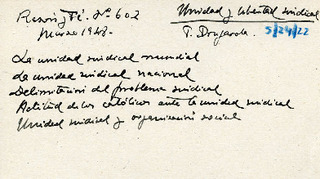 Razón y Fé. Nº 602
Marzo 1948.
Unidad y libertad sindical
T. Drugarola.
5/24/22
La unidad sindical mundial
La unidad sindical nacional
Delimitación del problema sindical
Actitud de los católicos ante la unidad sindical
Unidad sindical y organización social